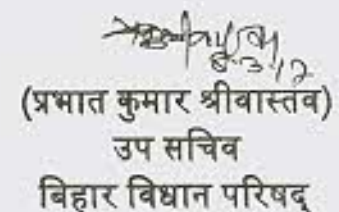 8.3.12
(प्रभात कुमार श्रीवास्तव)
उप सचिव
बिहार विधान परिषद्